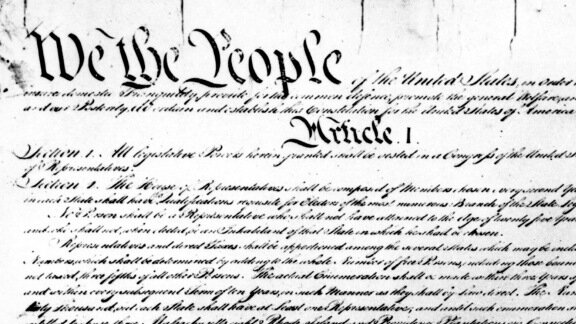 We the People of the United States, in Order
insure domestic Tranquility, provide for the common defence, promote the general Welfare, and
and our Posterity, do ordain and establish this Constitution for the United States of America
Article. I.
Section. 1. All legislative Powers herein granted shall be vested in a Congress of the United
of Representatives.
Section. 2. The House of Representatives shall be composed of Members chosen every second Year
in each State shall have Qualifications requisite for Electors of the most numerous Branch of the State
No Person shall be a Representative who shall not have attained to the Age of twenty five Years
and who shall not, when elected, be an Inhabitant of that State in which he shall be chosen.
Representatives and direct Taxes shall be apportioned among the several States which may be
Numbers, which shall be determined by adding to the whole Number of free Persons, including those
not taxed, three fifths of all other Persons. The actual Enumeration shall be made within three Years
and within every subsequent Term of ten Years, in such Manner as they shall by Law direct. The
thirty Thousand, but each State shall have at Least one Representative; and until such enumeration